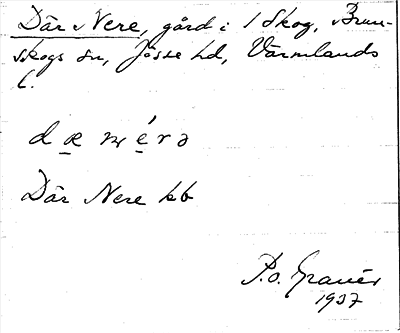 Där Nere, gård i Skog, Brun-
skogs sn, Jösse hd, Värmlands
l.
dæ nérə
Där Nere kb
P.O. Granér
1937